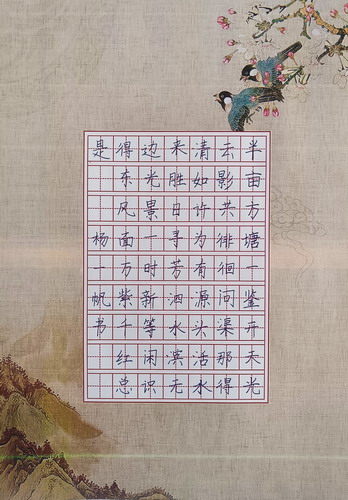 半亩方塘一鉴开天光
去影共徘徊问渠那得
清如许为有源头活水
来胜日寻芳泗水滨无
边光景一时新等闲识
得东风面万紫千红总
是 杨一帆书